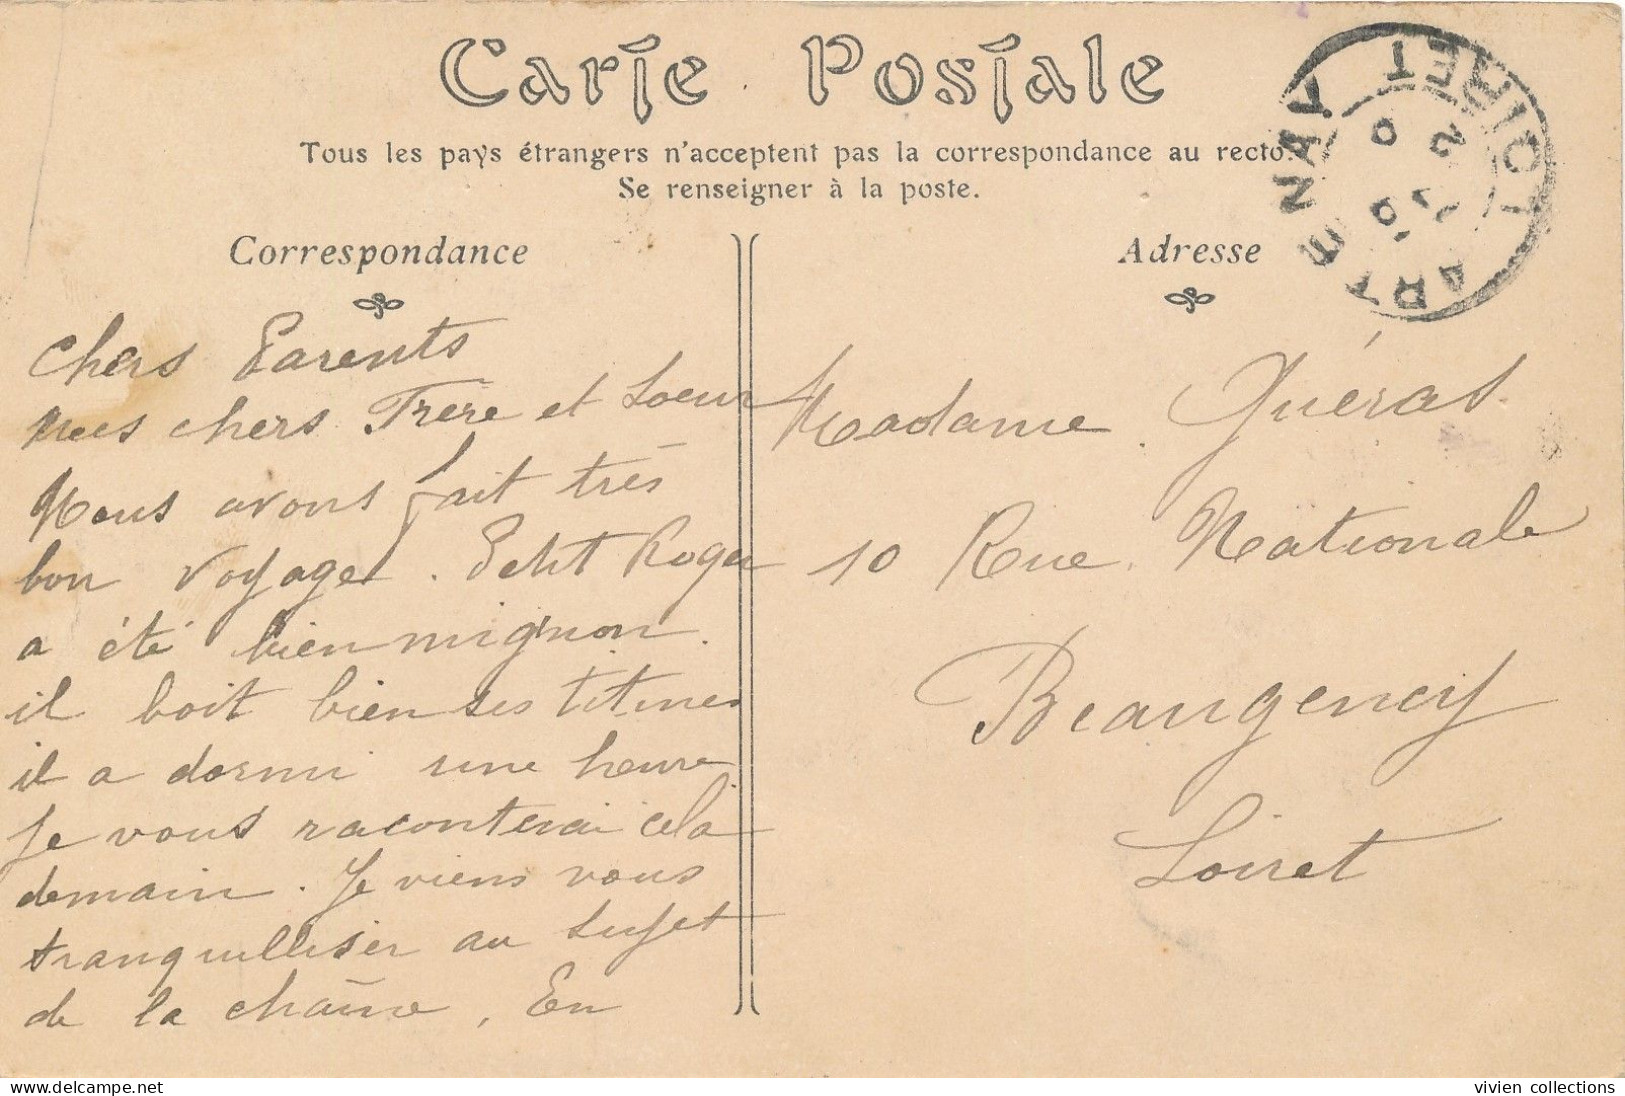 Carte Postale
Tous les pays étrangers n'acceptent pas la correspondance au recto.
Se renseigner à la poste.
Correspondance
Adresse
ARTENAY
LOIRET
Chers Parents
Mes chers Frère et Soeur
Nous avons fait très
bon voyage. Petit Roger
a été bien mignon.
il boit bien ses titines
il a dormi une heure
Je vous raconterai cela
demain. Je viens vous
tranquilliser au sujet
de la chaîne, En
Madame Quéras
10 Rue Nationale
Beaugency
Loiret
delcampe.net
vivien collections